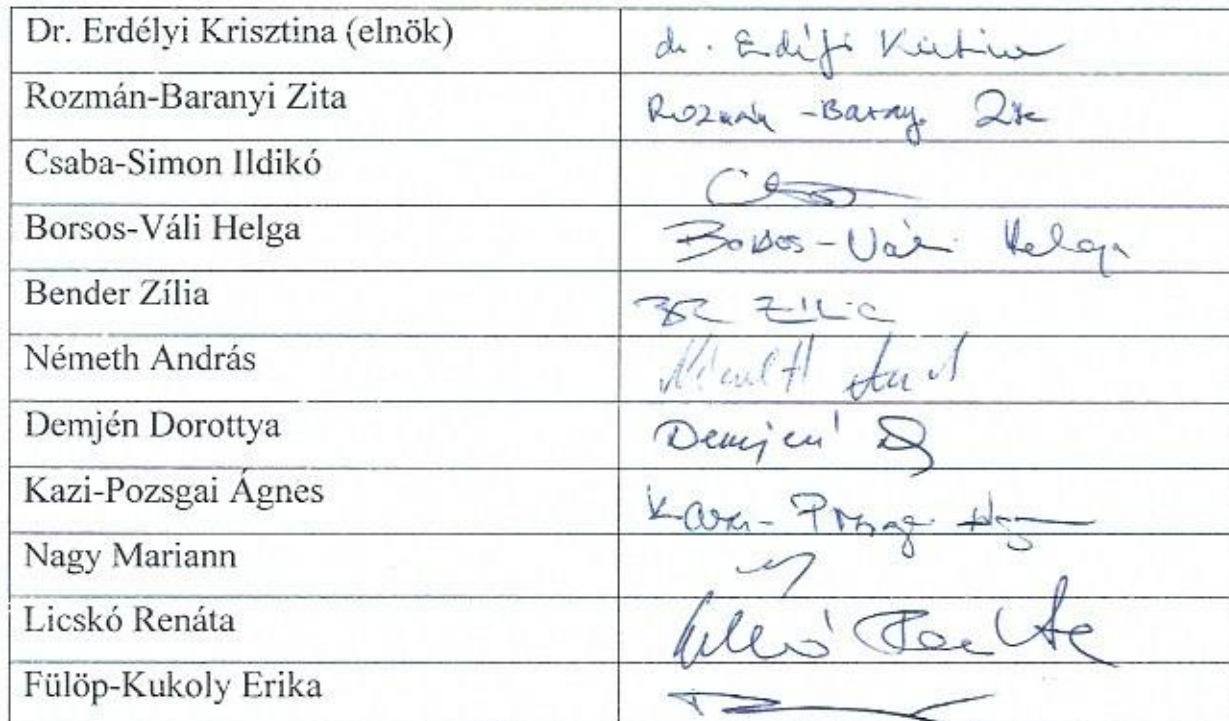 Dr. Erdélyi Krisztina (elnök) dr. Erdélyi Krisztina
Rozmán-Baranyi Zita Rozmán-Barany. Zita
Csaba-Simon Ildikó
Borsos-Váli Helga Borsos-Váli Helga
Bender Zília Zília
Németh András Németh
Demjén Dorottya Demjén D
Kazi-Pozsgai Ágnes Kazi-Pozsgai
Nagy Mariann
Licskó Renáta Licskó Renáta
Fülöp-Kukoly Erika